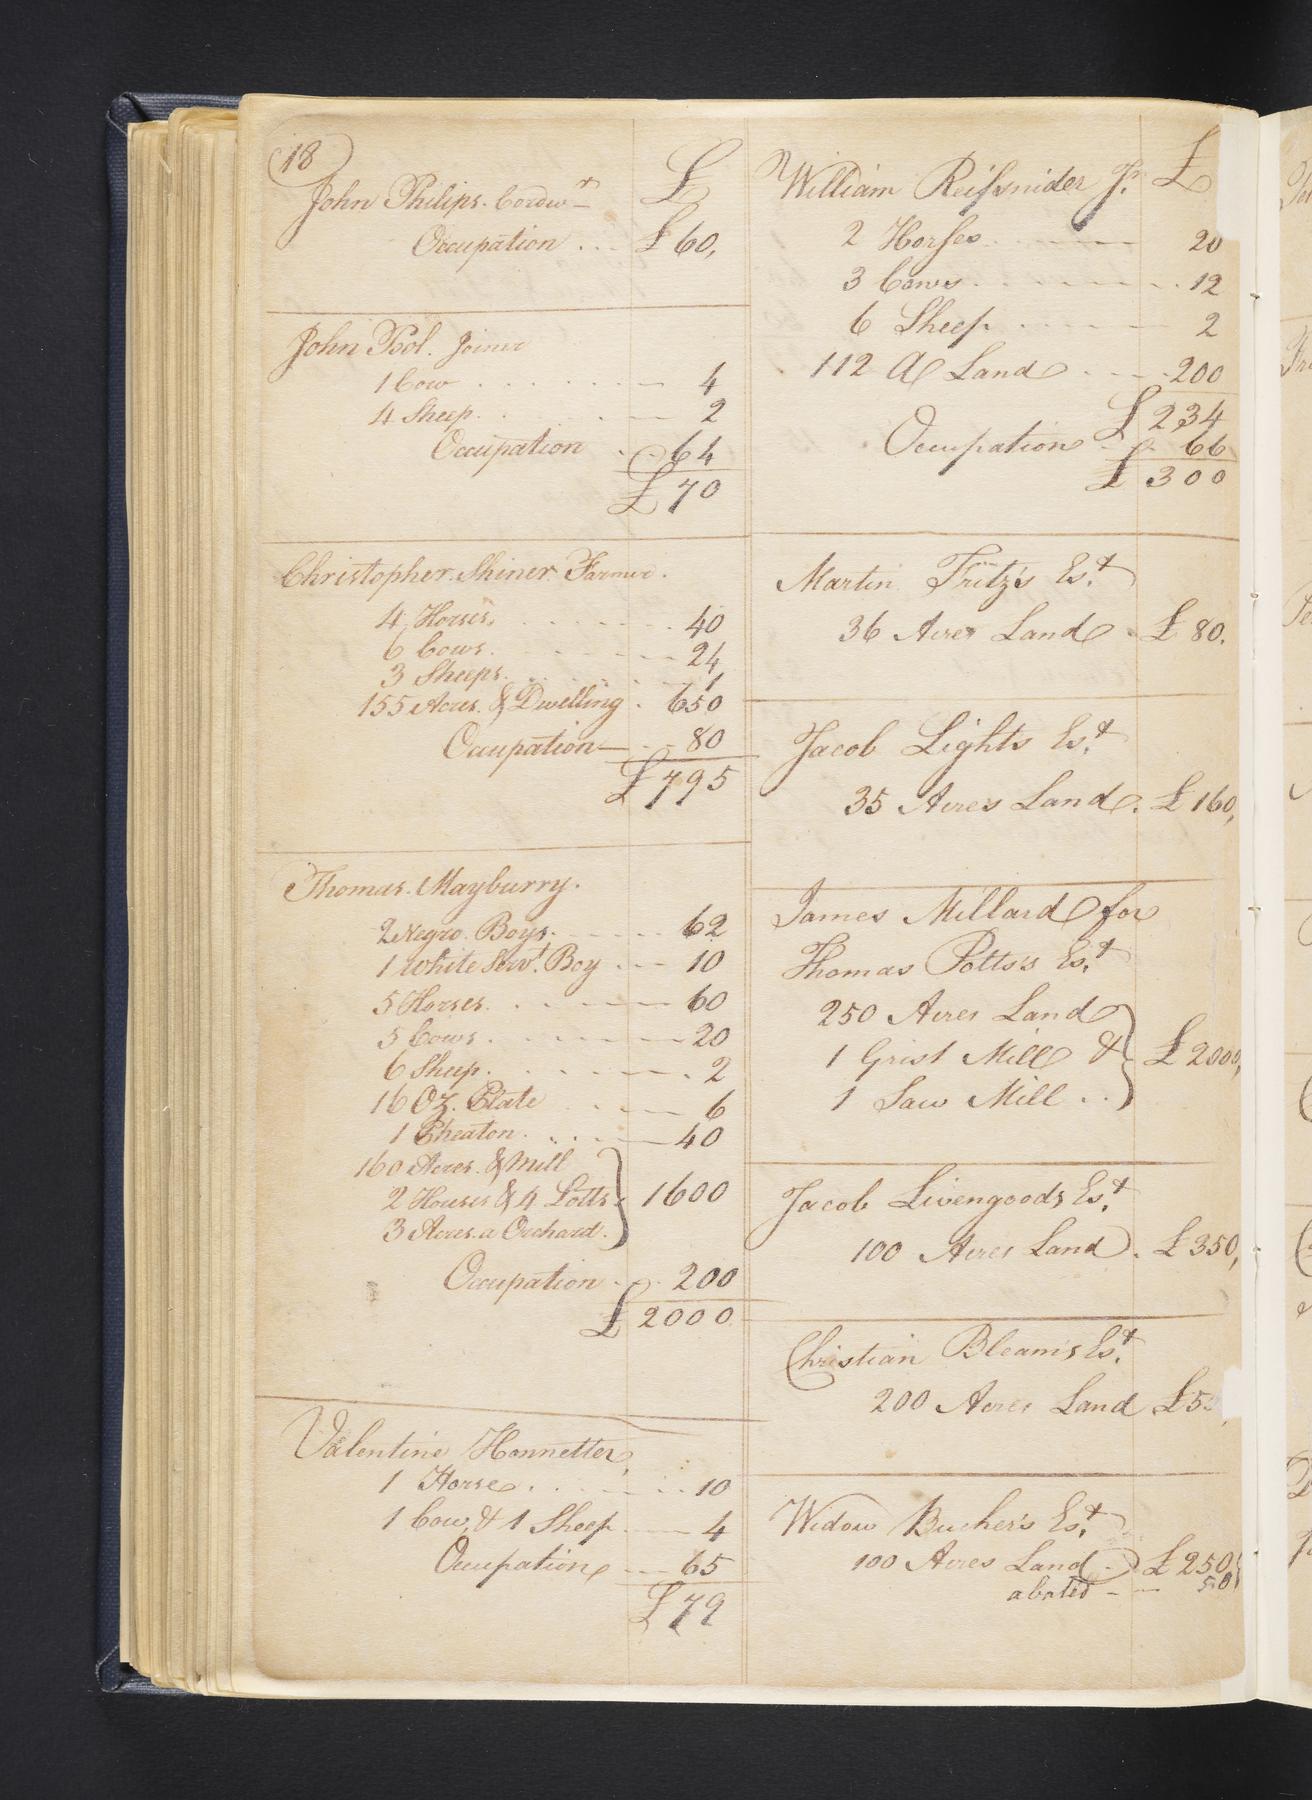 18
£
John Philips. Cordwr
Occupation ... £ 60,
John Pool. Joiner
1 Cow . . . . . . 4
4 Sheep. . . . 2
Occupation . . 64
£ 70
Christopher Shiner Farmer.
4 Horses, . . . . . . 40
6 Cows. . . . . 24
3 Sheeps. . . . . 1
155 Acres. & Dwelling . 650
Occupation — . 80
£ 795
Thomas. Mayburry.
2 Negro. Boys. . . . 62
1 White Servt. Boy . . . 10
5 Horses. . . . 60
5 Cows . . . . 20
6 Sheep. . . . . 2
16 Oz. Plate . . . 6
1 Pheaton. . . . 40
160 Acres. & Mill
2 Houses & 4 Lotts 1600
3 Acres. a Orchard.
Occupation . . . 200
£ 2000
Valentine Honnetter,
1 Horse . . . . . . 10
1 Cow, & 1 Sheep . . . 4
Occupation . . . 65
£ 79
William Reifsnider Jr. £
2 Horses . . . . 20
3 Cows . . . . . 12
6 Sheep . . . . 2
112 A Land . . . 200
£ 234
Occupation . . 66
£ 300
Martin Fritz's Est
36 Acres Land . £ 80.
Jacob Lights Est
35 Acres Land . £ 160,
James Millard for
Thomas Potts's Est
250 Acres Land
1 Grist Mill & £ 2000,
1 Saw Mill . .
Jacob Livengoods Est
100 Acres Land . £ 350,
Christian Bleam's Est
200 Acres Land £
Widow Bucher's Est
100 Acres Land . £ 250
abated - - 50